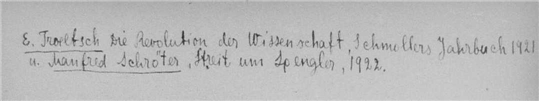 E. Troeltsch Die Revolution der Wissenschaft, Schmollers Jahrbuch 1921
u. Manfred Schröter, Streit um Spengler, 1922.